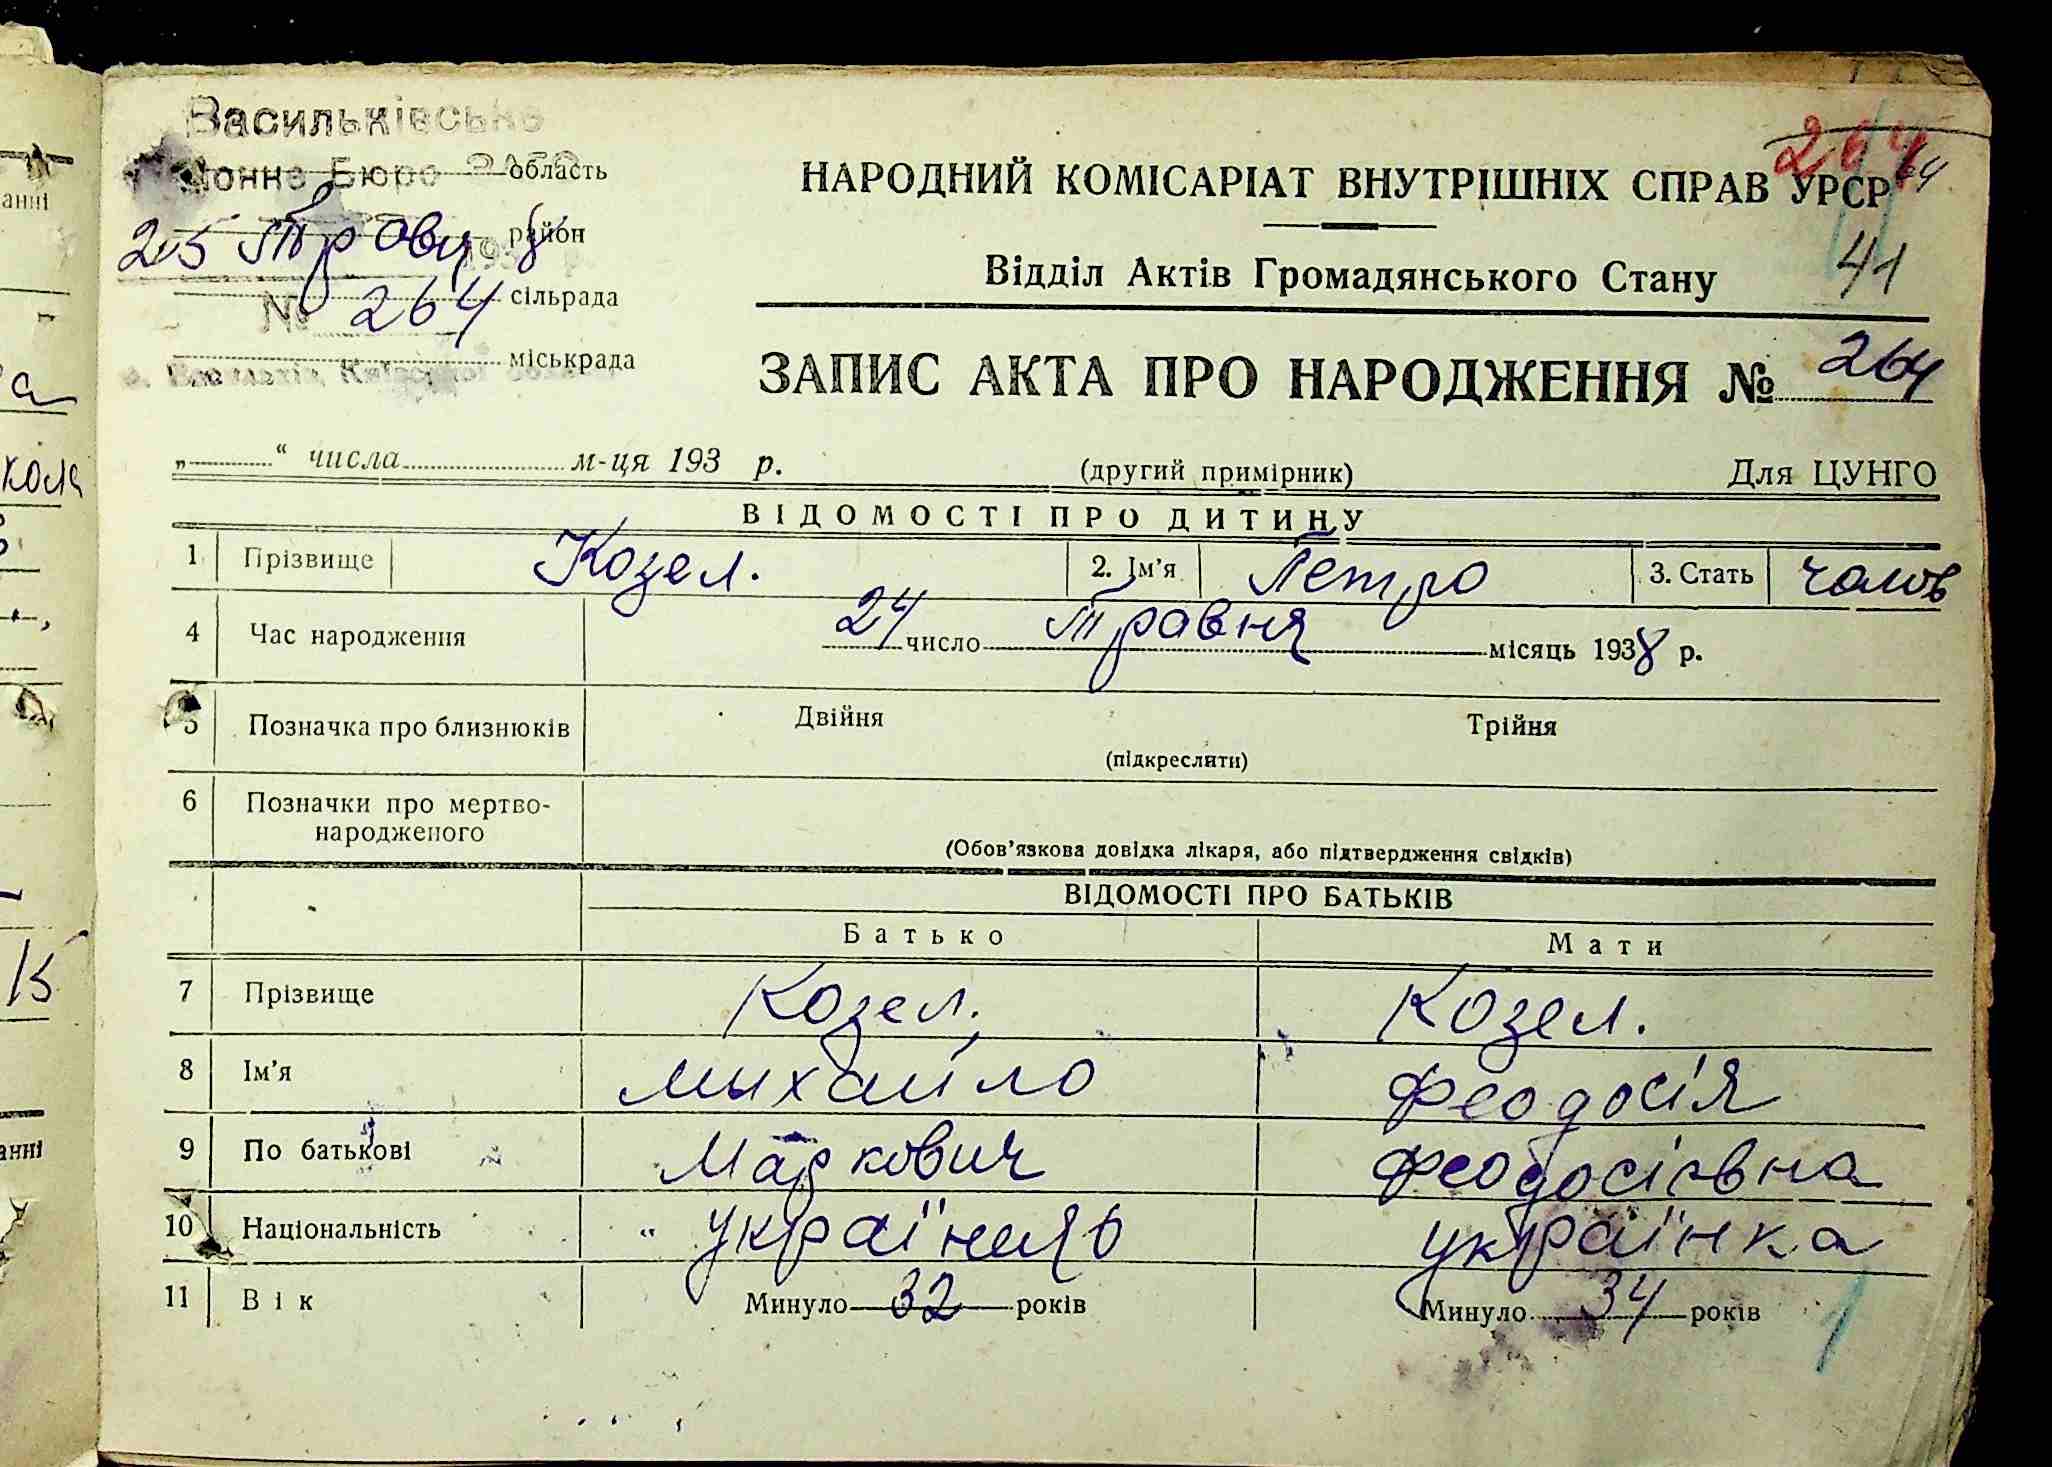 Васильківське
Бюро ЗАГС область
25 Травня 1938 р. район
№ 264 сільрада
міськрада
м. Васильків, Київської області
264
НАРОДНИЙ КОМІСАРІАТ ВНУТРІШНІХ СПРАВ УРСР
41
Відділ Актів Громадянського Стану
ЗАПИС АКТА ПРО НАРОДЖЕННЯ № 264
„ “ числа м-ця 193 р. (другий примірник) Для ЦУНГО
ВІДОМОСТІ ПРО ДИТИНУ
1 Прізвище Козел. 2. Ім'я Петро 3. Стать чолов
4 Час народження 24 число Травня місяць 1938 р.
5 Позначка про близнюків Двійня Трійня
(підкреслити)
6 Позначки про мертво-
народженого
(Обов'язкова довідка лікаря, або підтвердження свідків)
ВІДОМОСТІ ПРО БАТЬКІВ
Батько Мати
7 Прізвище Козел. Козел.
8 Ім'я Михайло Феодосія
9 По батькові Маркович Феодосієвна
10 Національність українець українка
11 Вік Минуло 32 років Минуло 34 років